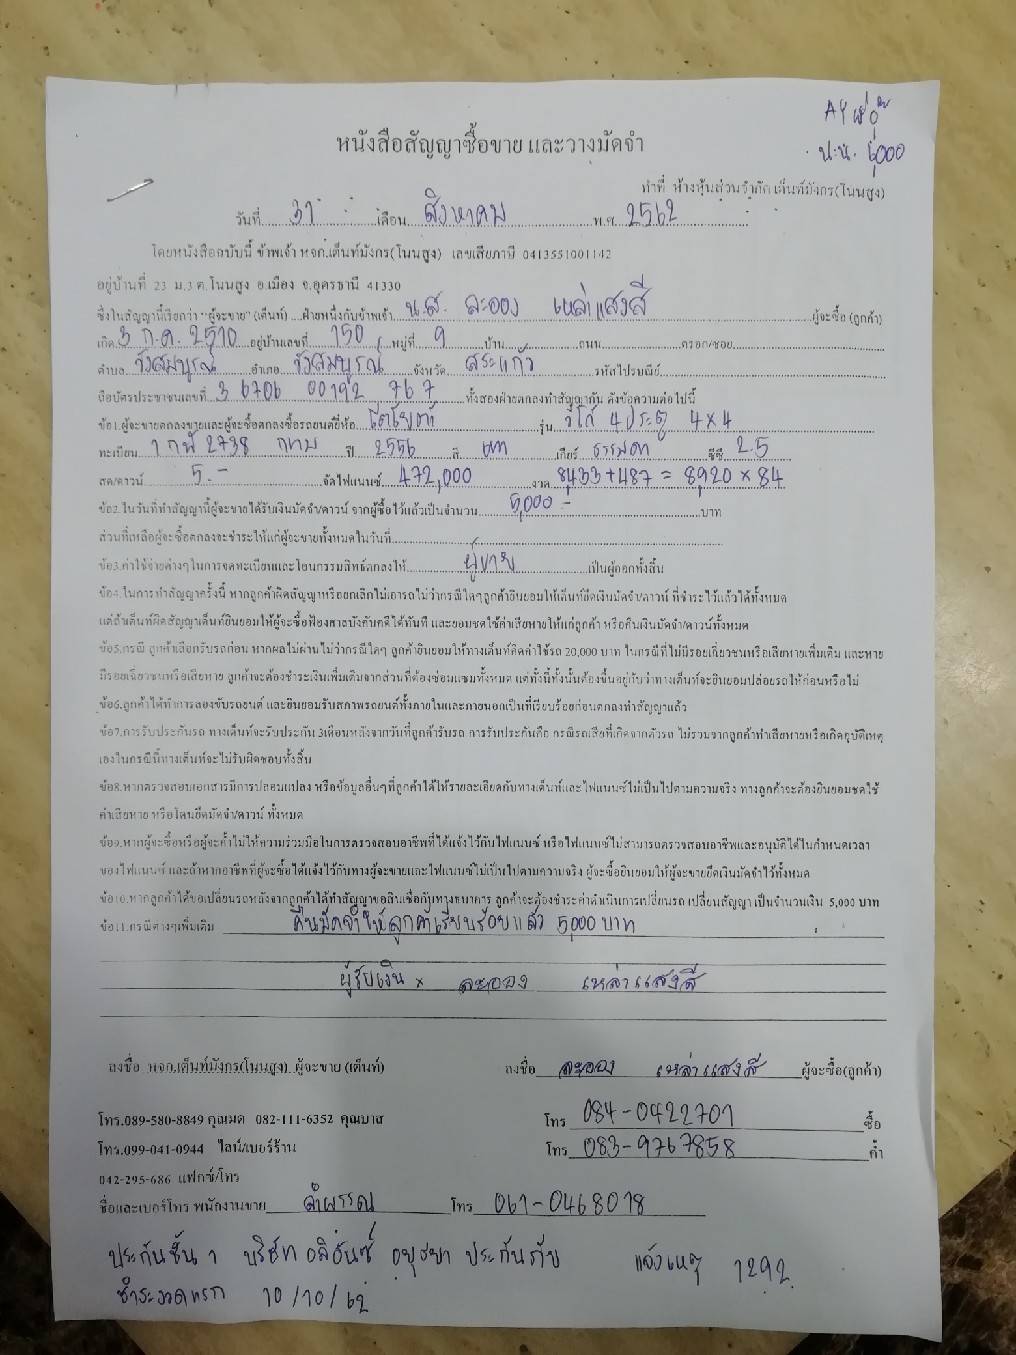 AY
น.น. 5,000
หนังสือสัญญาซื้อขาย และวางมัดจำ
ทำที่ ห้างหุ้นส่วนจำกัด เต็นท์มังกร(โนนสูง)
วันที่ 31 เดือน สิงหาคม พ.ศ. 2562
โดยหนังสือฉบับนี้ ข้าพเจ้า หจก.เต็นท์มังกร(โนนสูง) เลขเสียภาษี 0413551001142
อยู่บ้านที่ 23 ม.3 ต.โนนสูง อ.เมือง จ.อุดรธานี 41330
ซึ่งในสัญญานี้เรียกว่า "ผู้จะขาย" (เต็นท์) ฝ่ายหนึ่งกับข้าพเจ้า น.ส. ละออง เหล่าแสงสี ผู้จะซื้อ (ลูกค้า)
เกิด 3 ก.ค. 2510 อยู่บ้านเลขที่ 150 หมู่ที่ 9 บ้าน ถนน ตรอก/ซอย
ตำบล วังสมบูรณ์ อำเภอ วังสมบูรณ์ จังหวัด สระแก้ว รหัสไปรษณีย์
ถือบัตรประชาชนเลขที่ 3 6706 00192 76 7 ทั้งสองฝ่ายตกลงทำสัญญากัน ดังข้อความต่อไปนี้
ข้อ1.ผู้จะขายตกลงขายและผู้จะซื้อตกลงซื้อรถยนต์ยี่ห้อ โตโยต้า รุ่น วีโก้ 4 ประตู 4×4
ทะเบียน 1 กฬ 2738 กทม ปี 2556 สี เทา เกียร์ ธรรมดา ซีซี 2.5
สด/ดาวน์ 5.- จัดไฟแนนซ์ 472,000 งวด 8,433+487 = 8,920 × 84
ข้อ2.ในวันที่ทำสัญญานี้ผู้จะขายได้รับเงินมัดจำ/ดาวน์ จากผู้ซื้อไว้แล้วเป็นจำนวน 5,000 - บาท
ส่วนที่เหลือผู้จะซื้อตกลงจะชำระให้แก่ผู้จะขายทั้งหมดในวันที่
ข้อ3.ค่าใช้จ่ายต่างๆในการจดทะเบียนและโอนกรรมสิทธ์ตกลงให้ ผู้ขาย เป็นผู้ออกทั้งสิ้น
ข้อ4.ในการทำสัญญาครั้งนี้ หากลูกค้าผิดสัญญาหรือยกเลิกไม่เอารถไม่ว่ากรณีใดๆลูกค้ายินยอมให้เต็นท์ยึดเงินมัดจำ/ดาวน์ ที่ชำระไว้แล้วได้ทั้งหมด
แต่ถ้าเต็นท์ผิดสัญญาเต็นท์ยินยอมให้ผู้จะซื้อฟ้องศาลบังคับคดีได้ทันที และยอมชดใช้ค่าเสียหายให้แก่ลูกค้า หรือคืนเงินมัดจำ/ดาวน์ทั้งหมด
ข้อ5.กรณี ลูกค้าเลือกรับรถก่อน หากผลไม่ผ่านไม่ว่ากรณีใดๆ ลูกค้ายินยอมให้ทางเต็นท์คิดค่าใช้รถ 20,000 บาท ในกรณีที่ไม่มีรอยเฉี่ยวชนหรือเสียหายเพิ่มเติม และหาย
มีรอยเฉี่ยวชนหรือเสียหาย ลูกค้าจะต้องชำระเงินเพิ่มเติมจากส่วนที่ต้องซ่อมแซมทั้งหมด แต่ทั้งนี้ทั้งนั้นต้องขึ้นอยู่กับว่าทางเต็นท์จะยินยอมปล่อยรถให้ก่อนหรือไม่
ข้อ6.ลูกค้าได้ทำการลองขับรถยนต์ และยินยอมรับสภาพรถยนต์ทั้งภายในและภายนอกเป็นที่เรียบร้อยก่อนตกลงทำสัญญาแล้ว
ข้อ7.การรับประกันรถ ทางเต็นท์จะรับประกัน 3เดือนหลังจากวันที่ลูกค้ารับรถ การรับประกันคือ กรณีรถเสียที่เกิดจากตัวรถ ไม่รวมจากลูกค้าทำเสียหายหรือเกิดอุบัติเหตุ
เองในกรณีนี้ทางเต็นท์จะไม่รับผิดชอบทั้งสิ้น
ข้อ8.หากตรวจสอบเอกสารมีการปลอมแปลง หรือข้อมูลอื่นๆที่ลูกค้าได้ให้รายละเอียดกับทางเต็นท์และไฟแนนซ์ไม่เป็นไปตามความจริง ทางลูกค้าจะต้องยินยอมชดใช้
ค่าเสียหาย หรือโดนยึดมัดจำ/ดาวน์ ทั้งหมด
ข้อ9.หากผู้จะซื้อหรือผู้จะค้ำไม่ให้ความร่วมมือในการตรวจสอบอาชีพที่ได้แจ้งไว้กับไฟแนนซ์ หรือไฟแนนซ์ไม่สามารถตรวจสอบอาชีพและอนุมัติได้ในกำหนดเวลา
ของไฟแนนซ์ และถ้าหากอาชีพที่ผู้จะซื้อได้แจ้งไว้กับทางผู้จะขายและไฟแนนซ์ไม่เป็นไปตามความจริง ผู้จะซื้อยินยอมให้ผู้จะขายยึดเงินมัดจำไว้ทั้งหมด
ข้อ10.หากลูกค้าได้ขอเปลี่ยนรถหลังจากลูกค้าได้ทำสัญญาขอสินเชื่อกับทางธนาคาร ลูกค้าจะต้องชำระค่าดำเนินการเปลี่ยนรถ เปลี่ยนสัญญา เป็นจำนวนเงิน 5,000 บาท
ข้อ11.กรณีต่างๆเพิ่มเติม คืนมัดจำให้ลูกค้าเรียบร้อยแล้ว 5,000 บาท
ผู้รับเงิน × ละออง เหล่าแสงสี
ลงชื่อ หจก.เต็นท์มังกร(โนนสูง) ผู้จะขาย (เต็นท์) ลงชื่อ ละออง เหล่าแสงสี ผู้จะซื้อ(ลูกค้า)
โทร.089-580-8849 คุณมด 082-111-6352 คุณบาส โทร 084-0422701 ซื้อ
โทร.099-041-0944 ไลน์/เบอร์ร้าน โทร 083-9767858 ค้ำ
042-295-686 แฟกซ์/โทร
ชื่อและเบอร์โทร พนักงานขาย ลำพรรณ โทร 061-0468018
ประกันชั้น 1 บริษัท อลิอันซ์ อยุธยา ประกันภัย แจ้งเหตุ 1292
ชำระงวดแรก 10/10/62